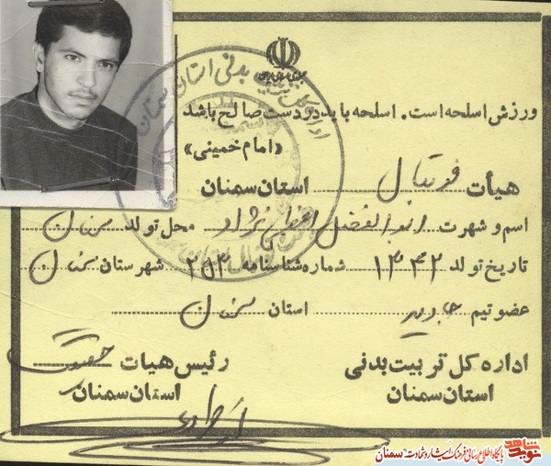 ورزش اسلحه است. اسلحه باید در دست صالح باشد
«امام خمینی»
هیأت فوتبال استان سمنان
اسم و شهرت ابوالفضل نژاد محل تولد سمنان
تاریخ تولد ۱۳۴۲ شماره شناسنامه ۲۵۳ شهرستان سمنان
عضو تیم استان سمنان
اداره کل تربیت بدنی رئیس هیات
استان سمنان استان سمنان
نوید شاهد
پایگاه اطلاع رسانی فرهنگ ایثار و شهادت سمنان